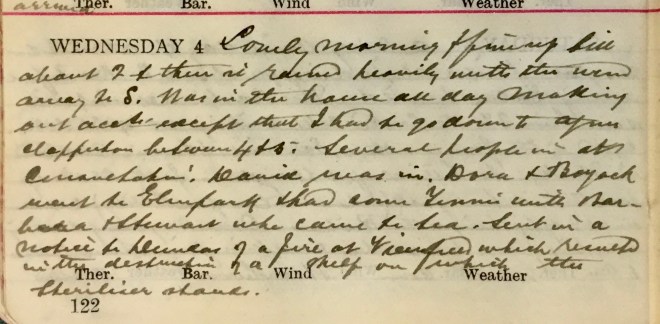 Ther. Bar. Wind Weather
WEDNESDAY 4 Lovely morning & fine up till
about 2 & then it rained heavily with the wind
away to S. Was in the house all day making
out accts except that I had to go down to
between 4 & 5. Several people in at
David was in. Dora &
went to Elmpark & had some Tennis with Bar-
bara & Stewart who came to tea. Sent in a
notice to Dundas of a fire at which resulted
in the destruction of a shelf on which the
Ther. Bar. Wind Weather
Steriliser stands.
122